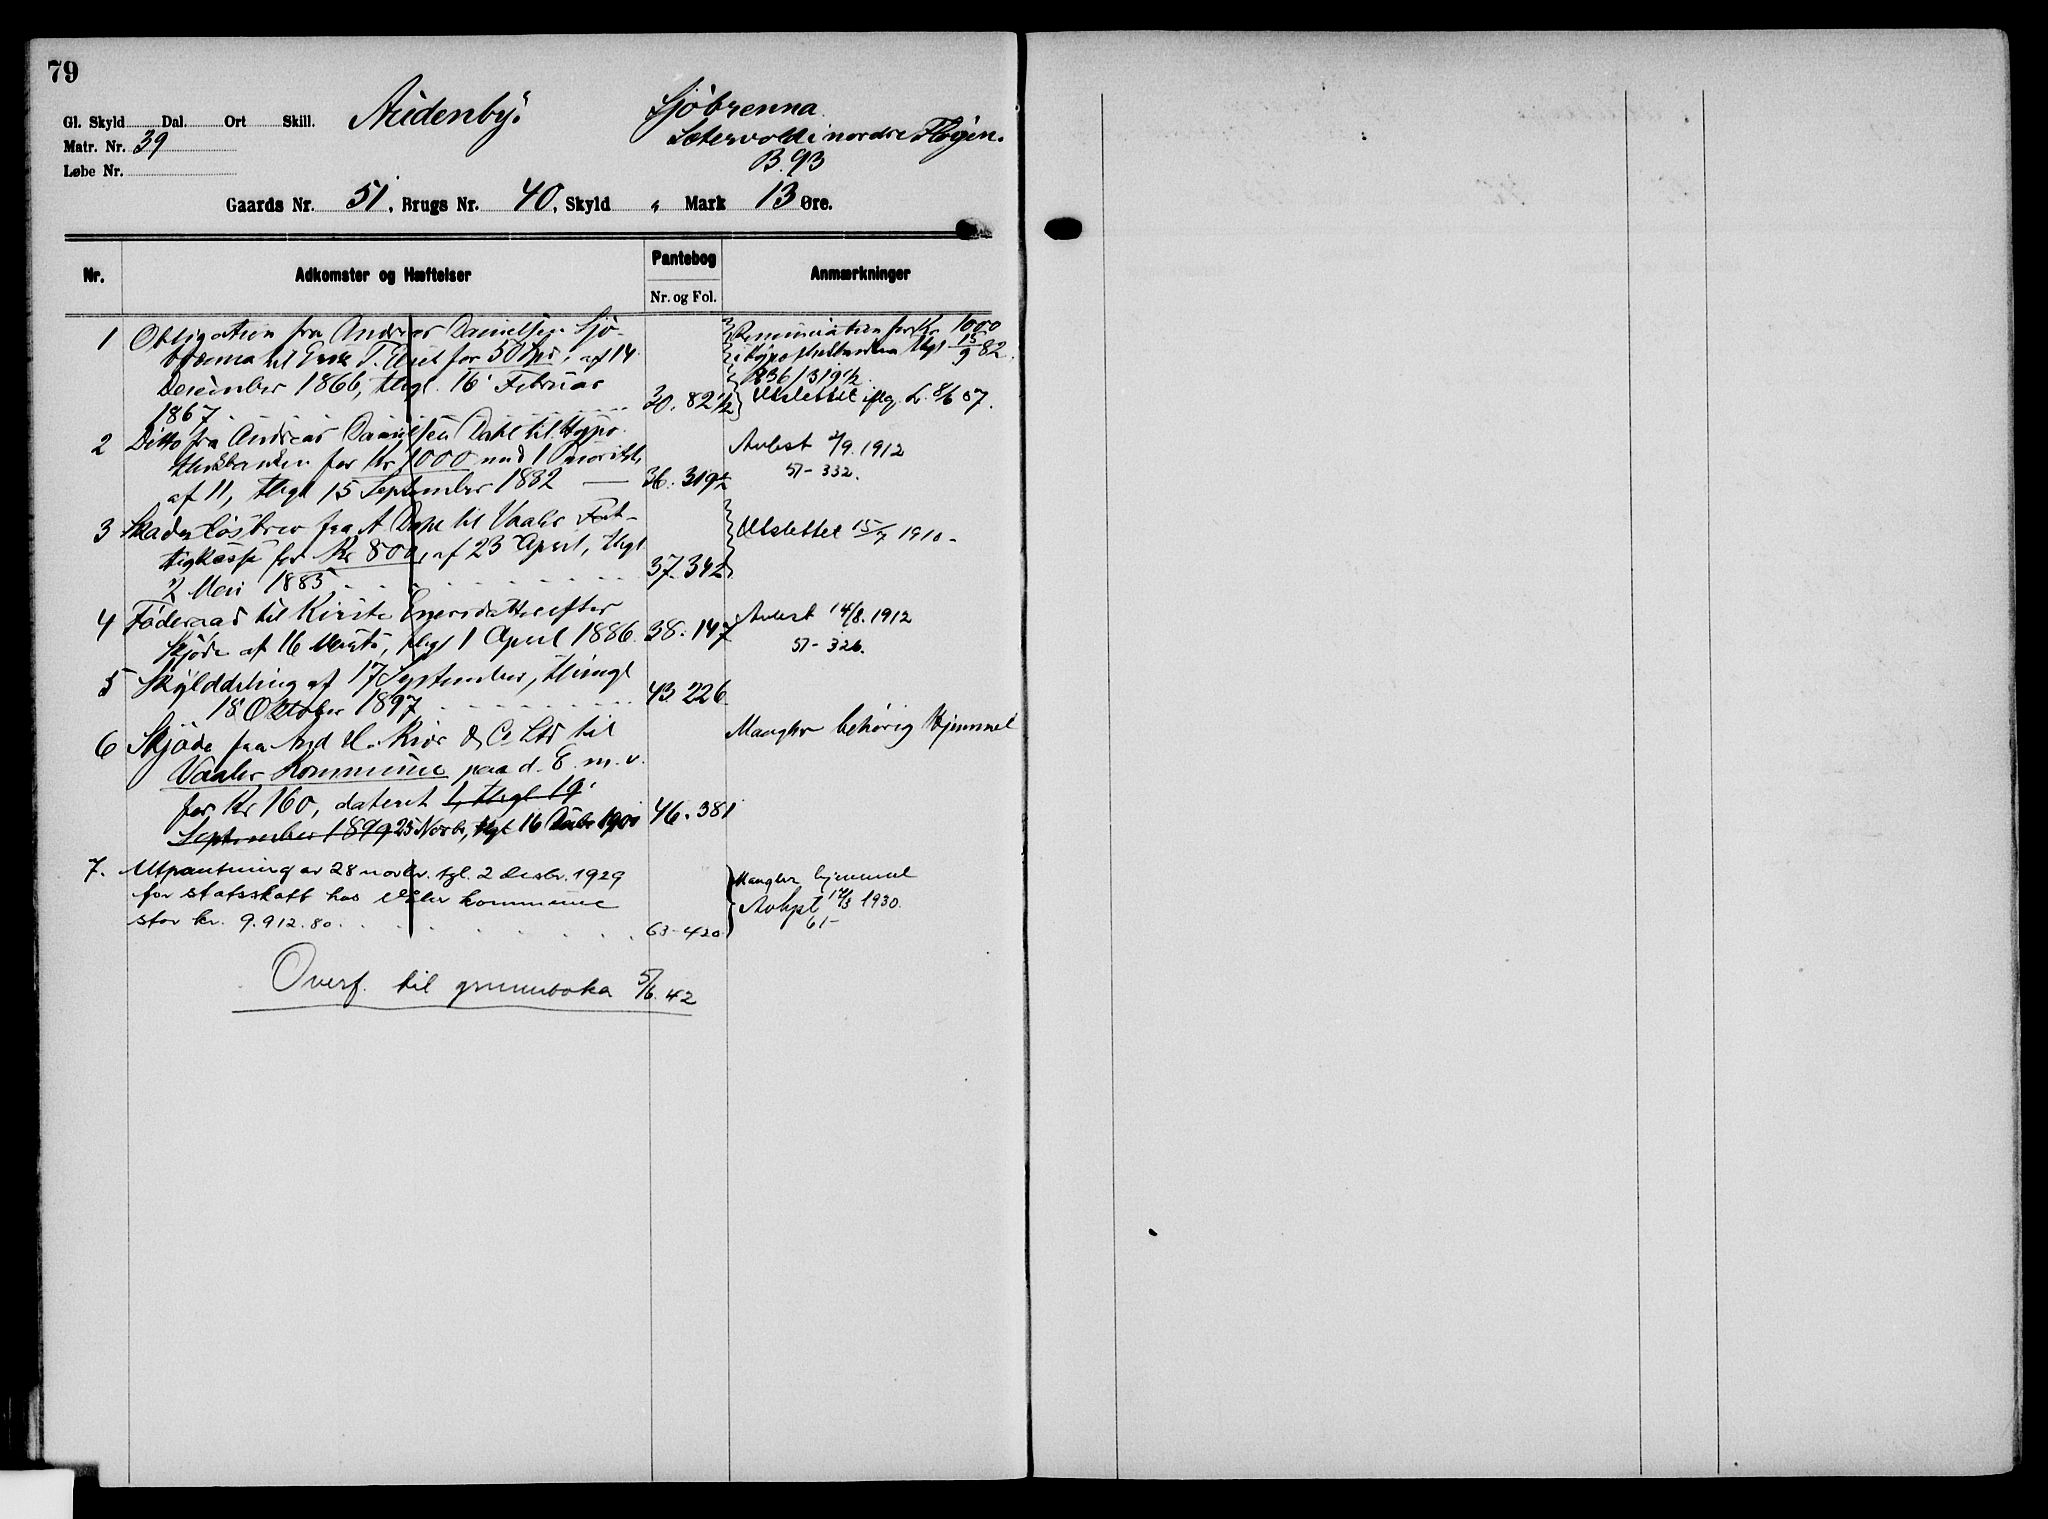 79
Gl. Skyld Dal. Ort Skill. Audenby. Sjöbrenna
Matr. Nr. 39 Sætervold i nordre Fløgen.
Løbe Nr. B. 93
Gaards Nr. 51, Brugs Nr. 40, Skyld " Mark 13 Øre.
Nr. Adkomster og Hæftelser Pantebog Anmærkninger
Nr. og Fol.
1 Obligation fra Andreas Danielsen Sjö- Renunciation for Kr 1000
brenna til T. for 50 Spd, af 14 i Hypothekbanken thgl 15/9 82.
December 1866, thgl. 16 Februar 36/319 1/2
1867 30. 82 1/2 Udslettet iflg. L. 8/6 07.
2 Ditto fra Andreas Danielsen Dahl til Hypo-
thekbanken for Kr 1000 med 1 Prioritet, Avlest 2/9. 1912
af 11, thgl 15 September 1882 — 36. 319 1/2 51 - 332.
3 Skadesløsbrev fra A Dahl til Vaaler Fat-
tigkasse for Kr 800, af 23 April, thgl Udslettet 15/7 1910.
2 Mai 1885 37. 342
4 Föderaad til Kirsti Embretsdatter efter Avlest 14/8. 1912
Skjöde af 16 Marts, thgl 1 April 1886. 38. 147 51 - 326.
5 Skylddeling af 17 September, thingl
18 Oktober 1897 43 226.
6 Skjöde fra And H. Kiær & Co Ltd til Mangler behörig Hjemmel
Vaaler Kommune paa d. E. m. v.
for Kr 160, dateret 1, thgl 19
September 1899 25 Novbr, thgl 16 Decbr 1900 46. 381
7. Utpantning av 28 novbr. tgl. 2 desbr. 1929 Mangler hjemmel
for statsskatt hos Våler kommune Avlyst 12/3 1930.
stor kr. 9.912.80. 63 - 420 61 -
Overf. til grunnboka 5/6. 42